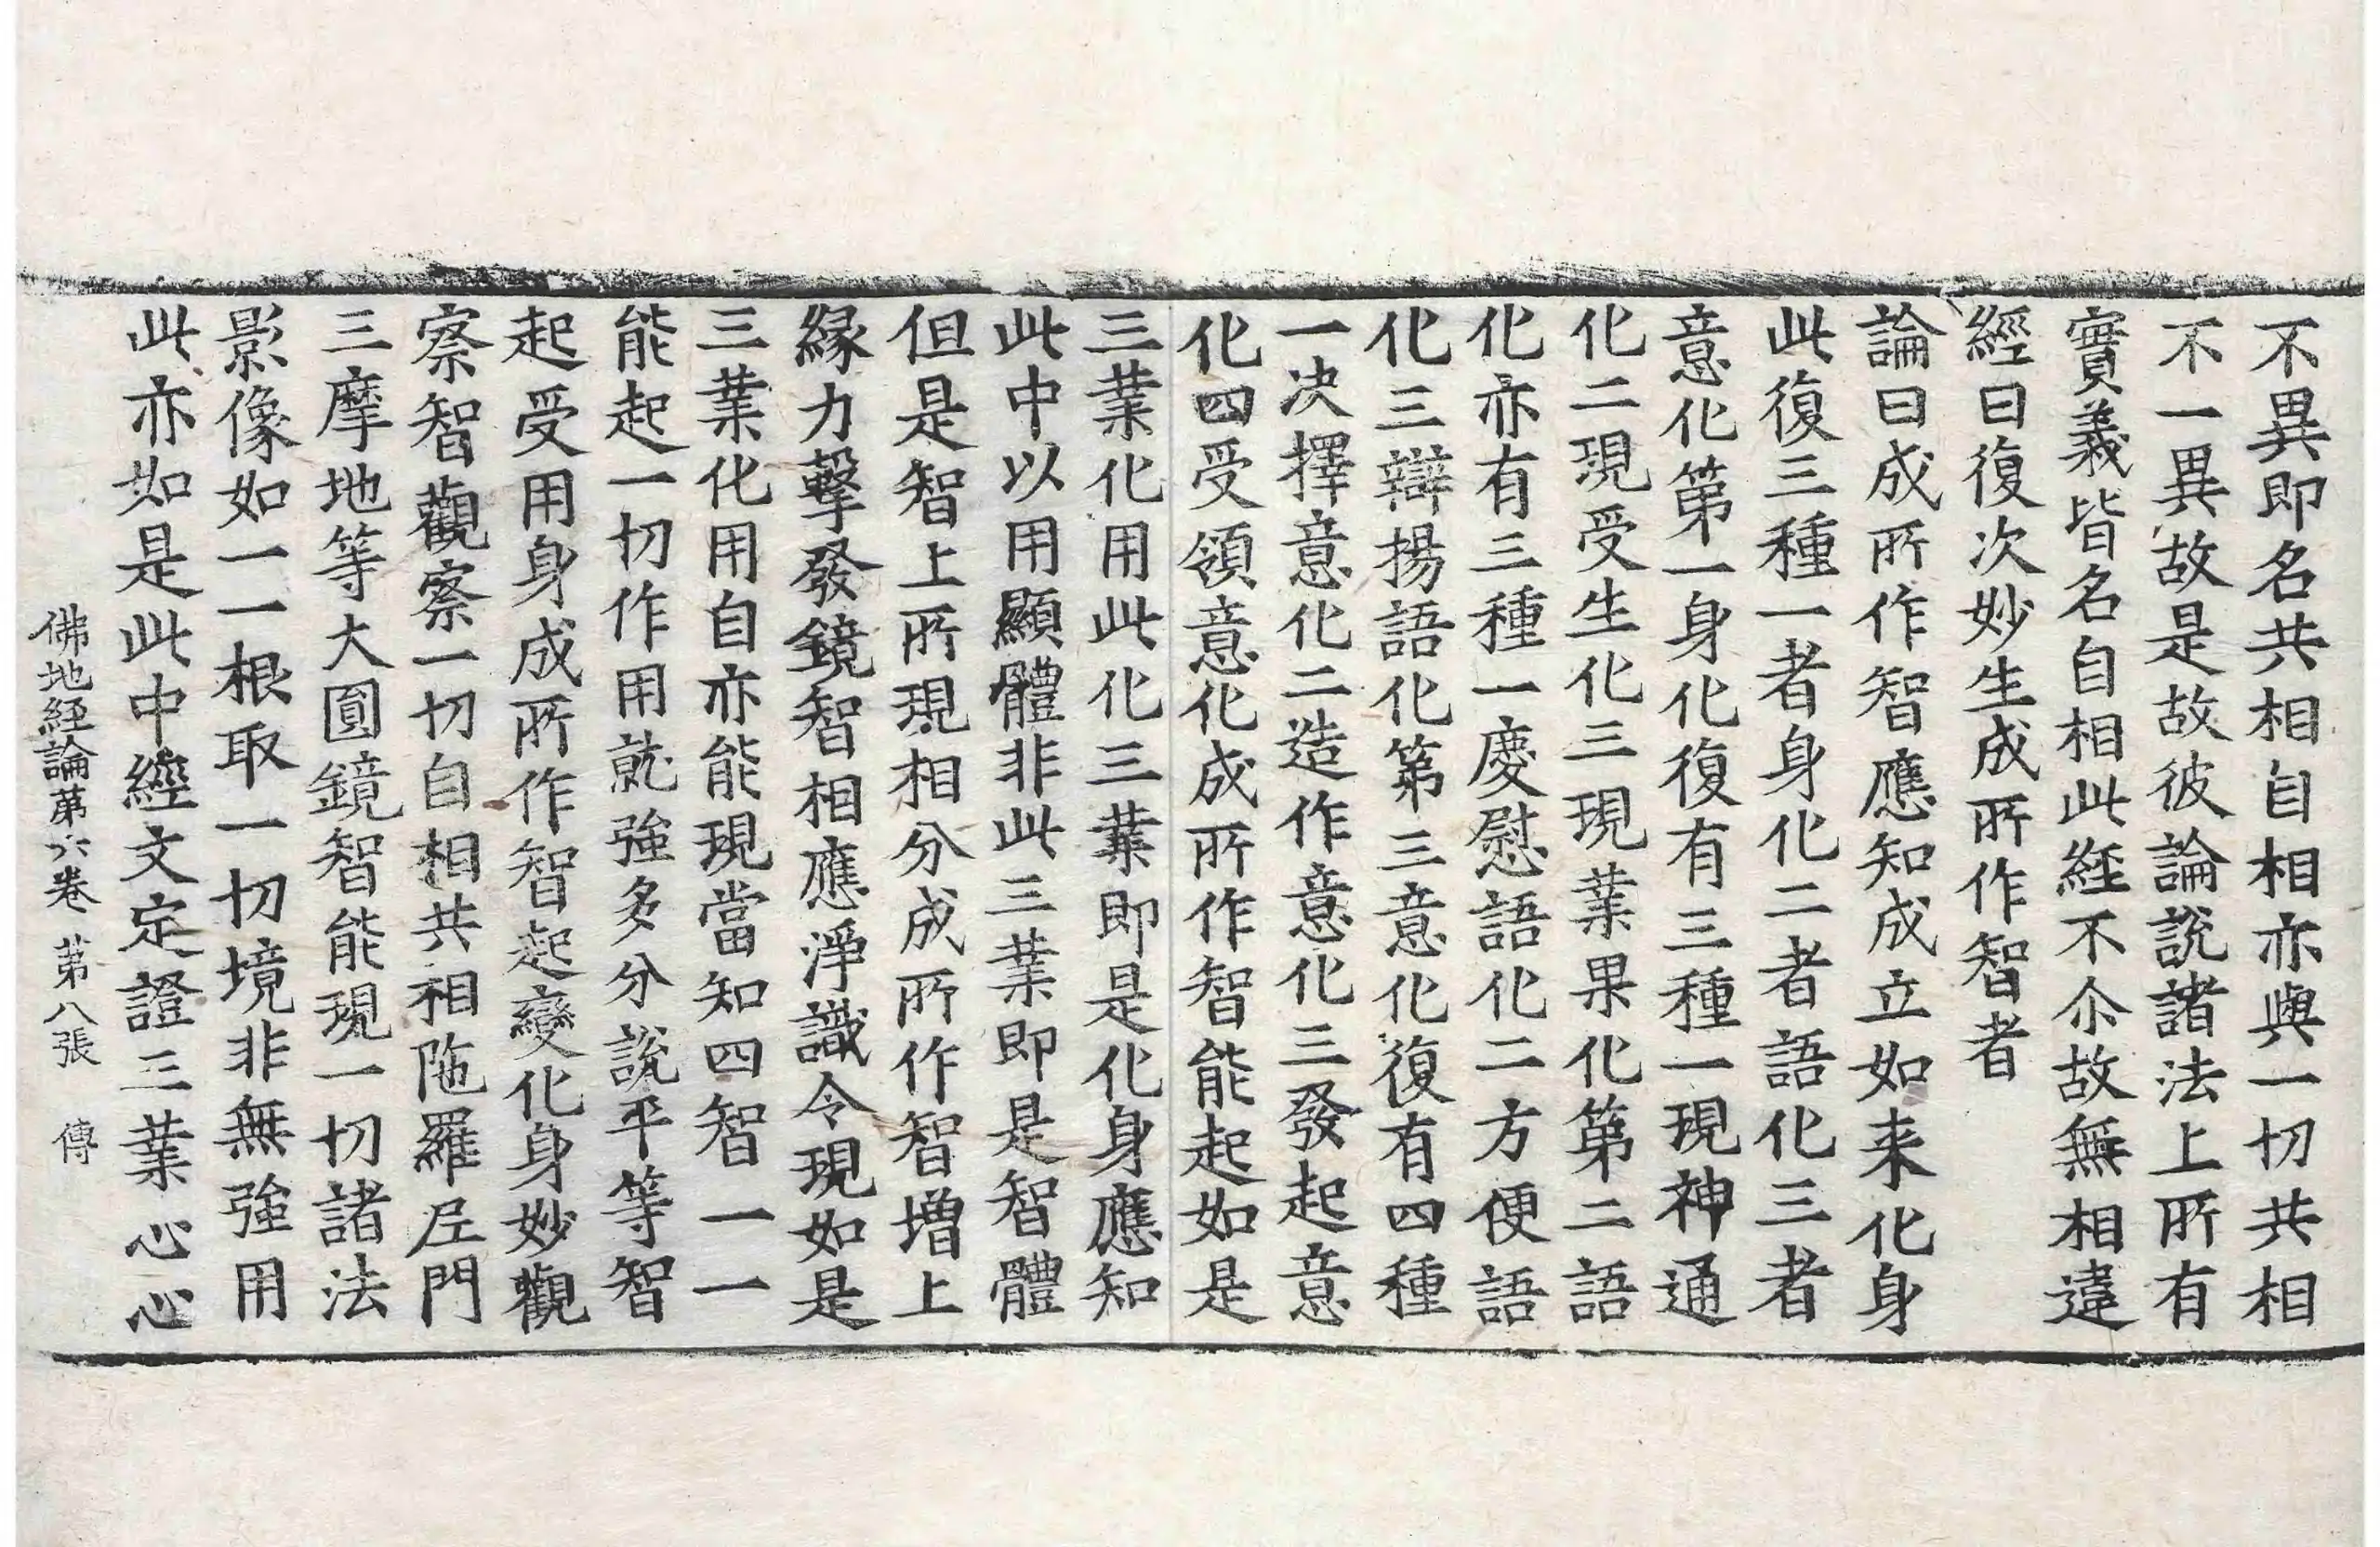 不異即名共相自相亦與一切共相
不一異故是故彼論說諸法上所有
實義皆名自相此経不尒故無相違
經曰復次妙生成所作智者
論曰成所作智應知成立如来化身
此復三種一者身化二者語化三者
意化第一身化復有三種一現神通
化二現受生化三現業果化第二語
化亦有三種一慶慰語化二方便語
化三辯揚語化第三意化復有四種
一决擇意化二造作意化三發起意
化四受領意化成所作智能起如是
三業化用此化三業即是化身應知
此中以用顯體非此三業即是智體
但是智上所現相分成所作智增上
緣力擊發鏡智相應淨識令現如是
三業化用自亦能現當知四智一一
能起一切作用就強多分說平等智
起受用身成所作智起變化身妙觀
察智觀察一切自相共相陁羅尼門
三摩地等大圓鏡智能現一切諸法
影像如一一根取一切境非無強用
此亦如是此中經文定證三業心心
佛地経論第六卷 第八張 傳